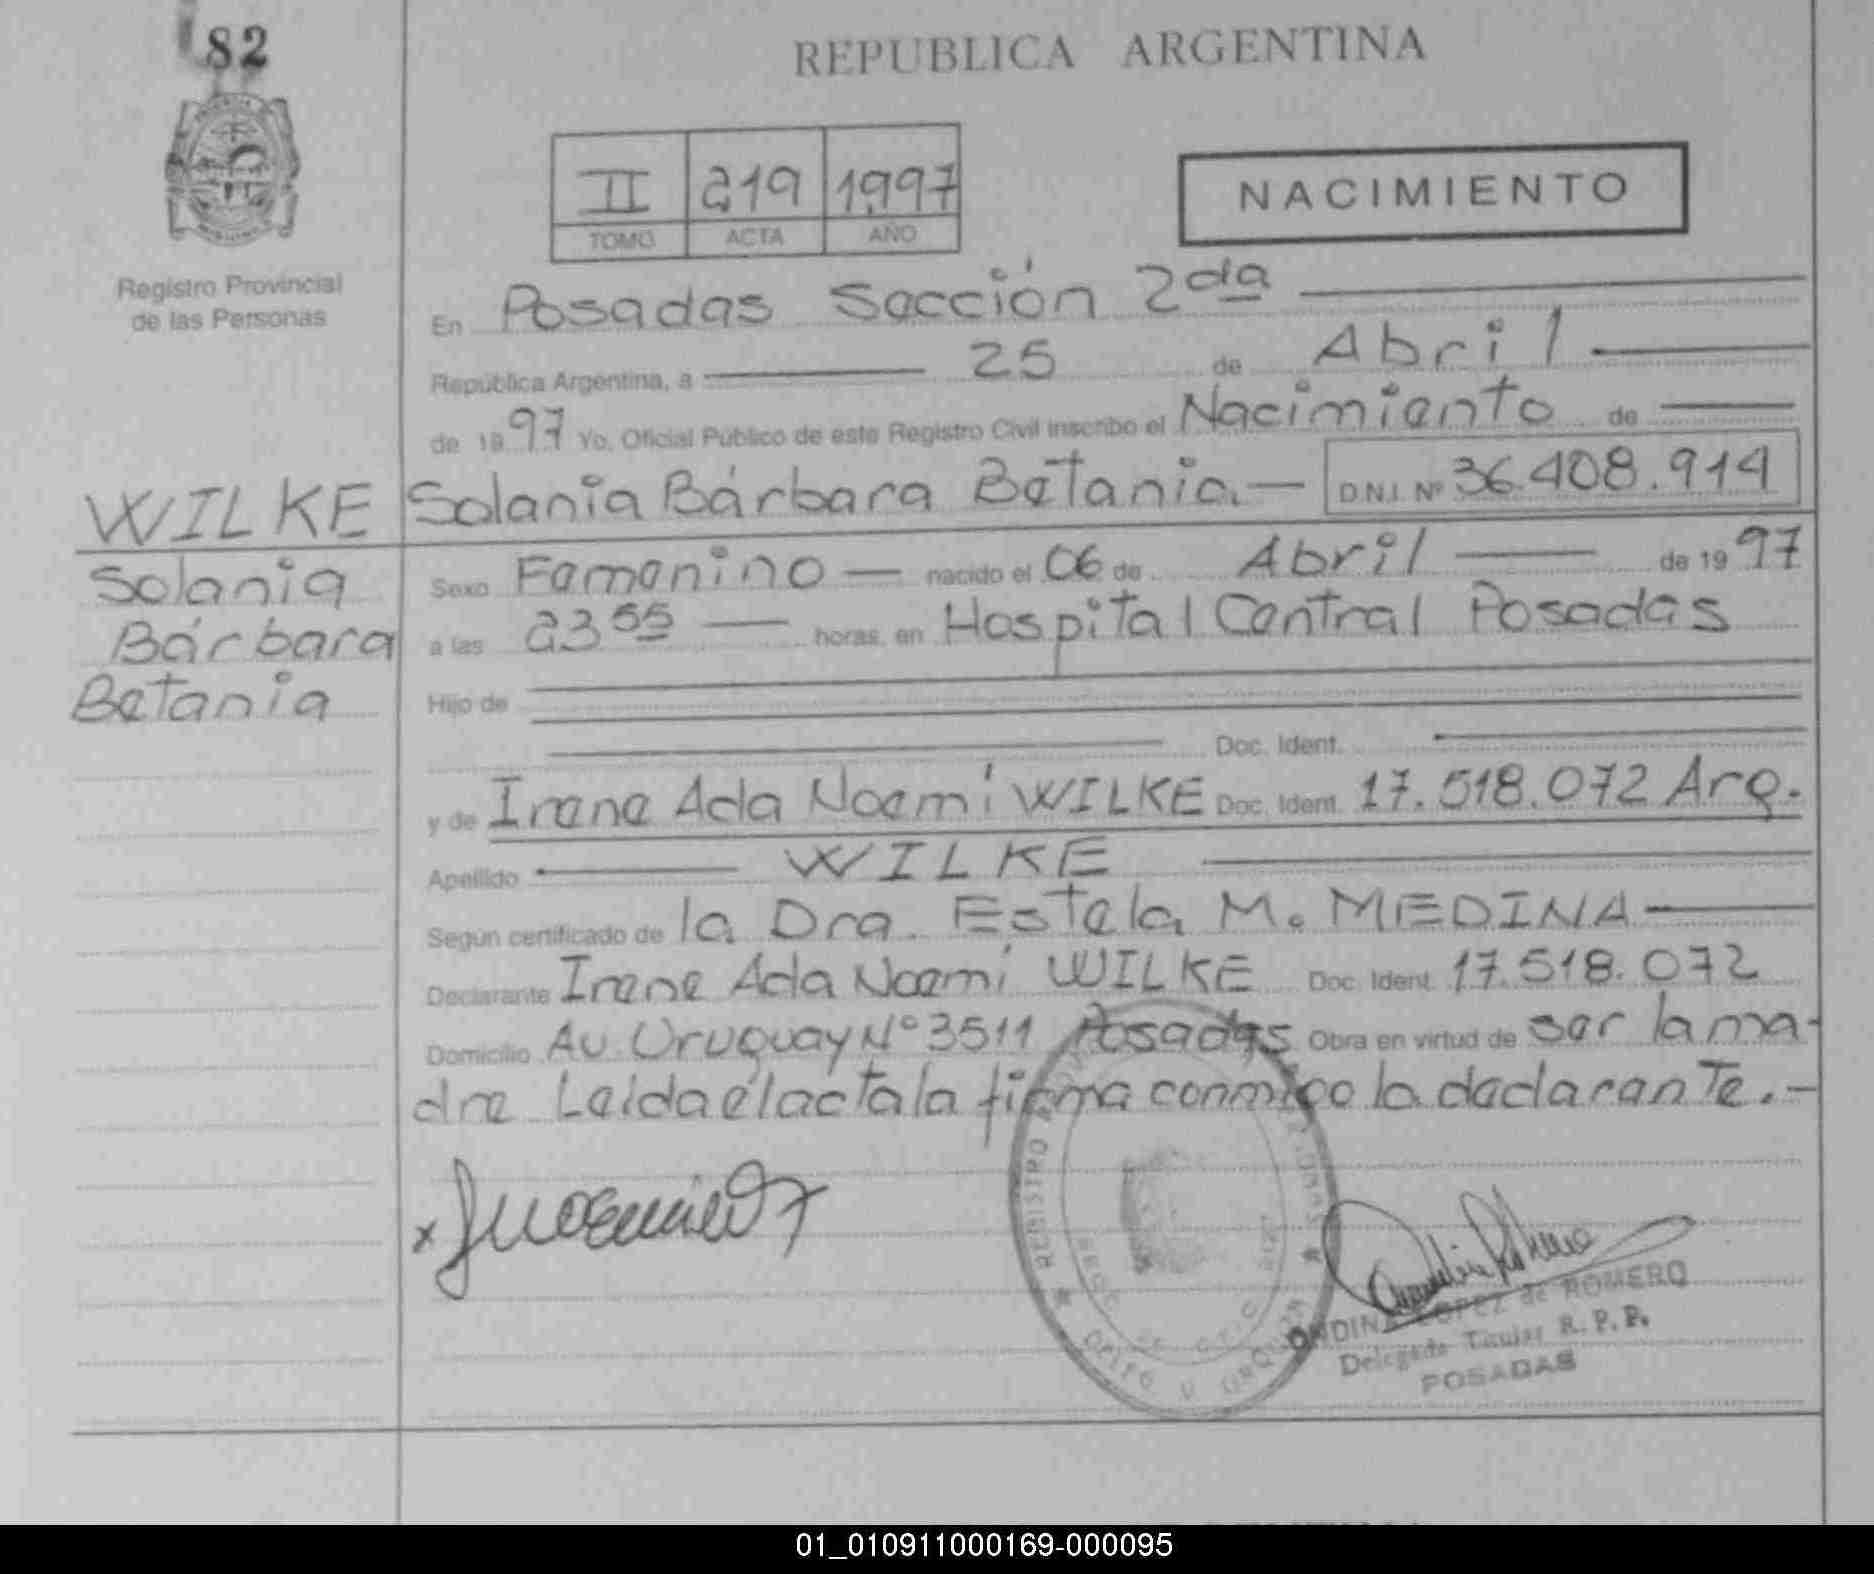 82
REPUBLICA ARGENTINA
II 219 1997
TOMO ACTA AÑO
NACIMIENTO
Registro Provincial
de las Personas
En Posadas Sección 2da
República Argentina, a 25 de Abril
de 1997 Yo, Oficial Público de este Registro Civil inscribo el Nacimiento de
WILKE Solania Bárbara Betania D.N.I. Nº 36.408.914
Solania
Bárbara
Betania
Sexo Femenino nacido el 06 de Abril de 1997
a las 23 55 horas, en Hospital Central Posadas
Hijo de
Doc. Ident.
y de Irene Ada Noemí WILKE Doc. Ident. 17.518.072 Arg.
Apellido WILKE
Según certificado de la Dra. Estela M. MEDINA
Declarante Irene Ada Noemí WILKE Doc. Ident. 17.518.072
Domicilio Av. Uruguay Nº 3511 Posadas Obra en virtud de ser la ma-
dre Leída el acta la firma conmigo la declarante.-
ONDINA LOPEZ de ROMERO
Delegada Titular R. P. P.
POSADAS
01_010911000169-000095